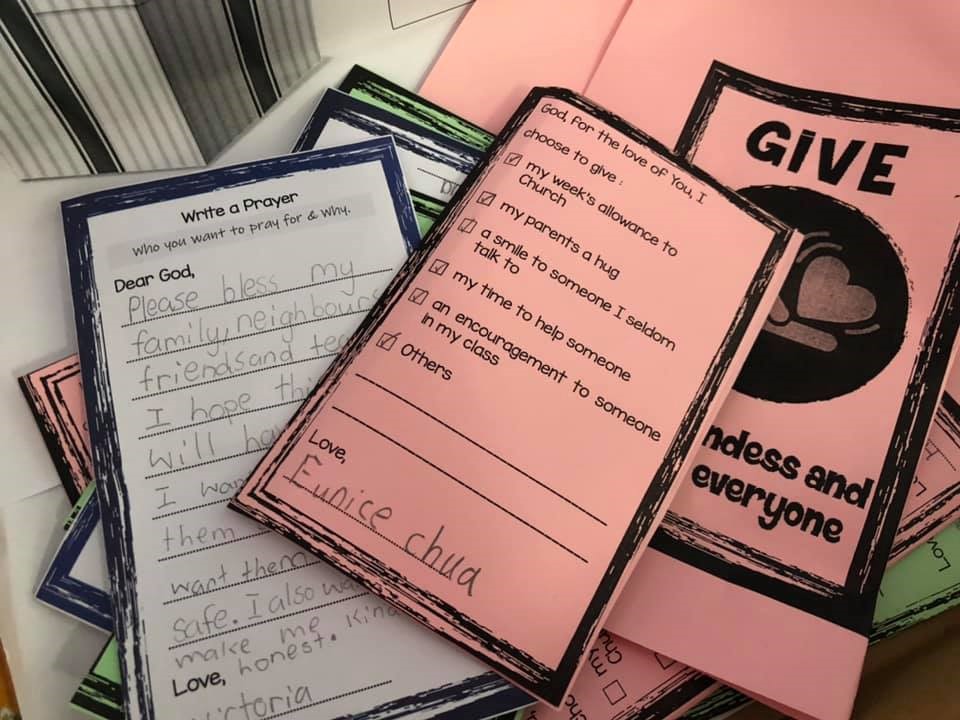 Write a Prayer
Who you want to pray for & Why.
Dear God,
Please bless my
family, neighbours
friends and
I hope
will
I
them
want them
safe. I also
make me
honest. kind
Love,
God, for the love of You, I
choose to give :
my week's allowance to
Church
my parents a hug
a smile to someone I seldom
talk to
my time to help someone
an encouragement to someone
in my class
Others
Love,
Eunice chua
GIVE
and
everyone
my
Love